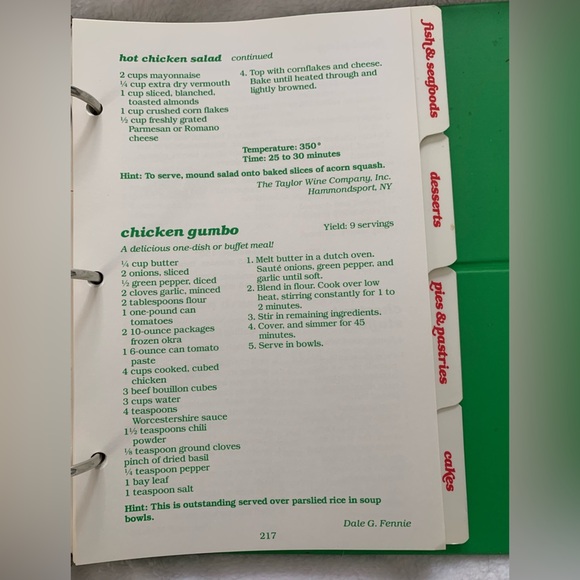 hot chicken salad continued
2 cups mayonnaise
¼ cup extra dry vermouth
1 cup sliced, blanched,
toasted almonds
1 cup crushed corn flakes
½ cup freshly grated
Parmesan or Romano
cheese
4. Top with cornflakes and cheese.
Bake until heated through and
lightly browned.
Temperature: 350°
Time: 25 to 30 minutes
Hint: To serve, mound salad onto baked slices of acorn squash.
The Taylor Wine Company, Inc.
Hammondsport, NY
chicken gumbo
Yield: 9 servings
A delicious one-dish or buffet meal!
¼ cup butter
2 onions, sliced
½ green pepper, diced
2 cloves garlic, minced
2 tablespoons flour
1 one-pound can
tomatoes
2 10-ounce packages
frozen okra
1 6-ounce can tomato
paste
4 cups cooked, cubed
chicken
3 beef bouillon cubes
3 cups water
4 teaspoons
Worcestershire sauce
1½ teaspoons chili
powder
⅛ teaspoon ground cloves
pinch of dried basil
¼ teaspoon pepper
1 bay leaf
1 teaspoon salt
1. Melt butter in a dutch oven.
Sauté onions, green pepper, and
garlic until soft.
2. Blend in flour. Cook over low
heat, stirring constantly for 1 to
2 minutes.
3. Stir in remaining ingredients.
4. Cover, and simmer for 45
minutes.
5. Serve in bowls.
Hint: This is outstanding served over parslied rice in soup
bowls.
Dale G. Fennie
217
fish & seafoods
desserts
pies & pastries
cakes